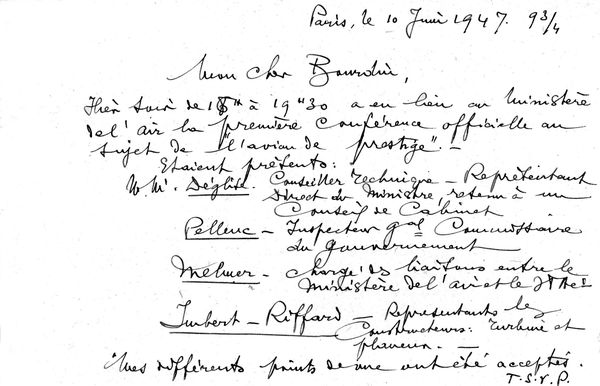 Paris, le 10 Juin 1947. 9 3/4
Mon cher Bourdin,
Hier soir de 18H à 19H30 a eu lieu au Ministère
de l'air la première Conférence officielle au
sujet de "l'avion de prestige". –
Etaient présents:
M.M. Déglise. Conseiller Technique – Représentant
Direct du Ministre retenu à un
Conseil de Cabinet
Pellenc – Inspecteur gal Commissaire
du Gouvernement
– Chargé des liaisons entre le
Ministère de l'air et le
Imbert – Riffard – Représentants les
Constructeurs: Turbine et
planeur. –
Mes différents points de vue ont été acceptés.
T.S.V.P.